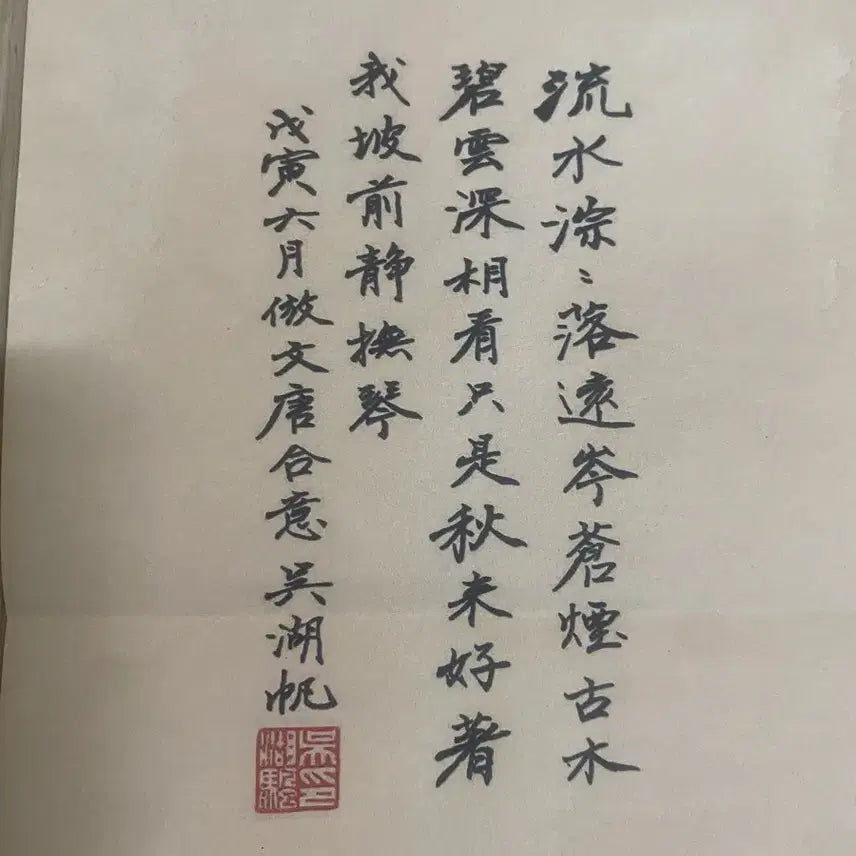 流水淙〻落遠岑蒼煙古木
碧雲深相看只是秋来好著
我坡前静撫琴
戊寅六月倣文唐合意吳湖帆
吳湖顠印